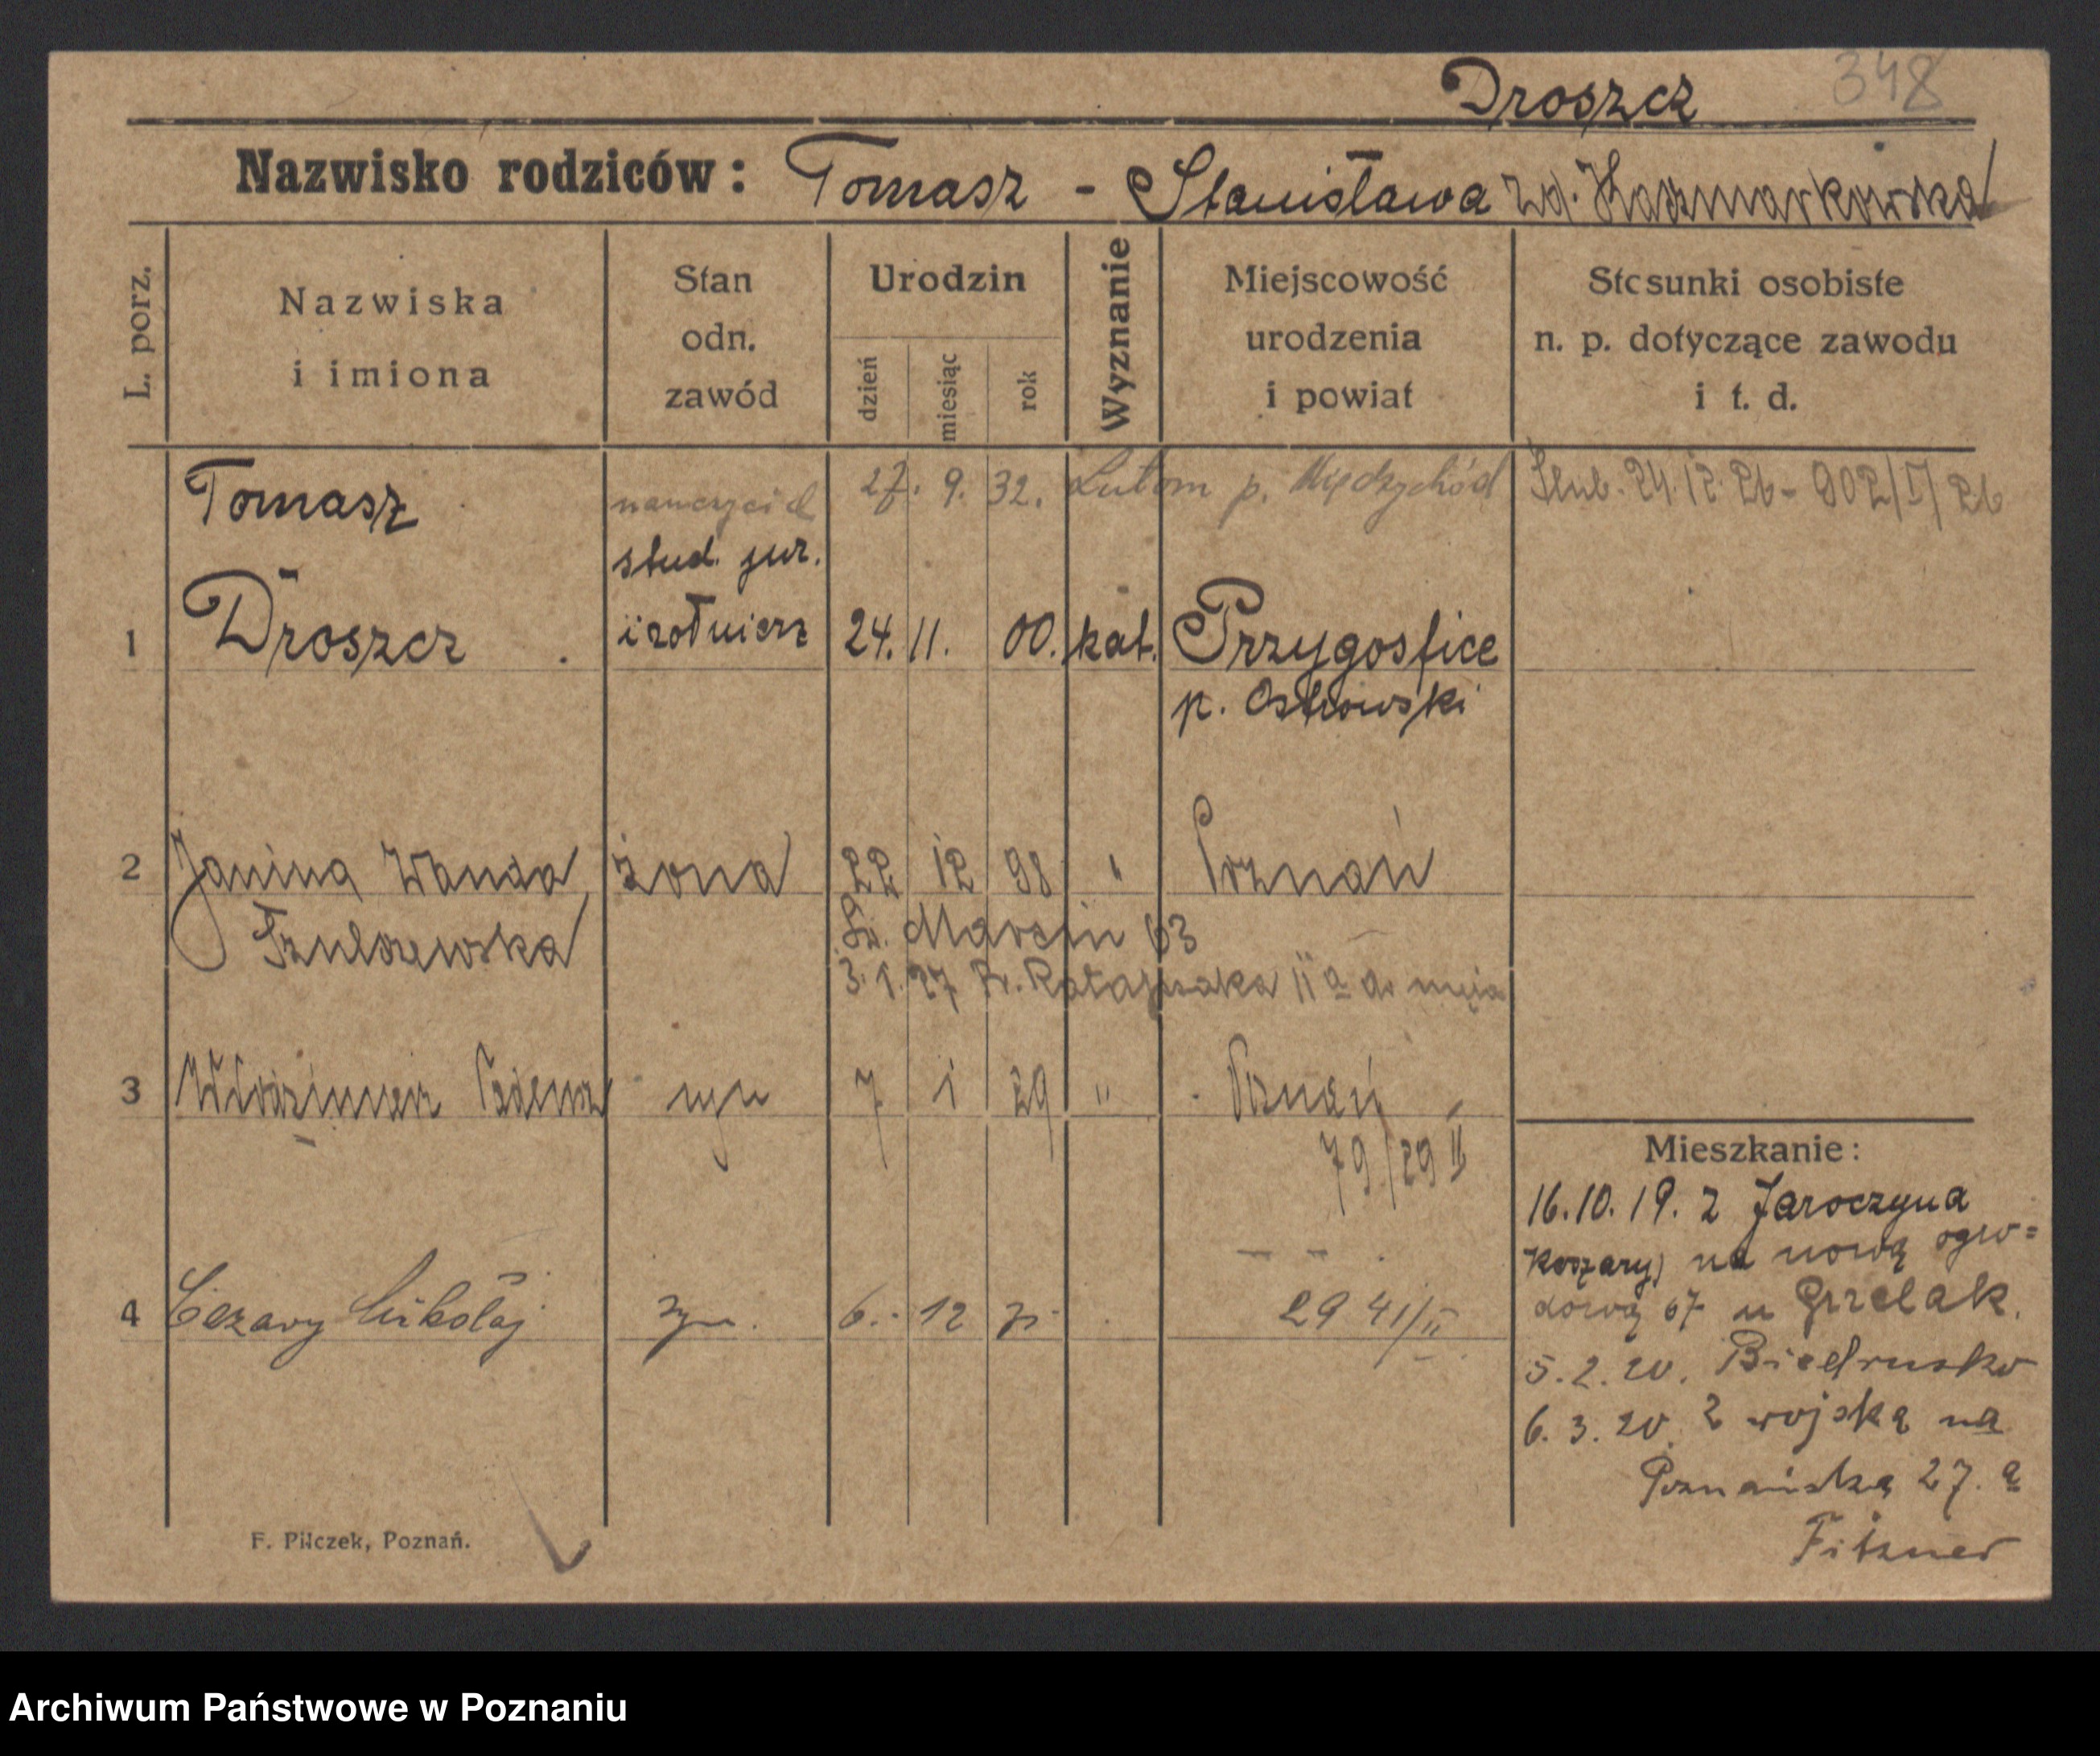 Droszcz 348
Nazwisko rodziców: Tomasz - Stanisława zd. Kaczmarkowska
L. porz.
Nazwiska
i imiona
Stan
odn.
zawód
Urodzin
dzień
miesiąc
rok
Wyznanie
Miejscowość
urodzenia
i powiat
Stosunki osobiste
n. p. dotyczące zawodu
i t. d.
Tomasz nauczyciel 27. 9. 32. Lutom p. Międzychód Ślub. 24.12.26 - 902/II/26
stud. jur.
1 Droszcz i żołnierz 24. 11. 00. kat. Przygosfice
p. Ostrowski
2 Janina Wanda żona 22 12 98 " Poznań
Szulczewska Św. Marcin 63
3.1.27 Fr. Ratajczaka 11a do męża
3 Włodzimierz Tadeusz syn 7 1 29 " Poznań
79/29 II
4 Cezary Mikołaj syn. 6. 12 31. 2941/II
Mieszkanie:
16.10.19. z Jaroczyna
koszary) na nową ogro=
dową 67 u Grzelak.
5.2.20. Biedrusko
6.3.20. z wojska na
Poznańską 27.a
Fitzner
F. Pilczek, Poznań.
Archiwum Państwowe w Poznaniu